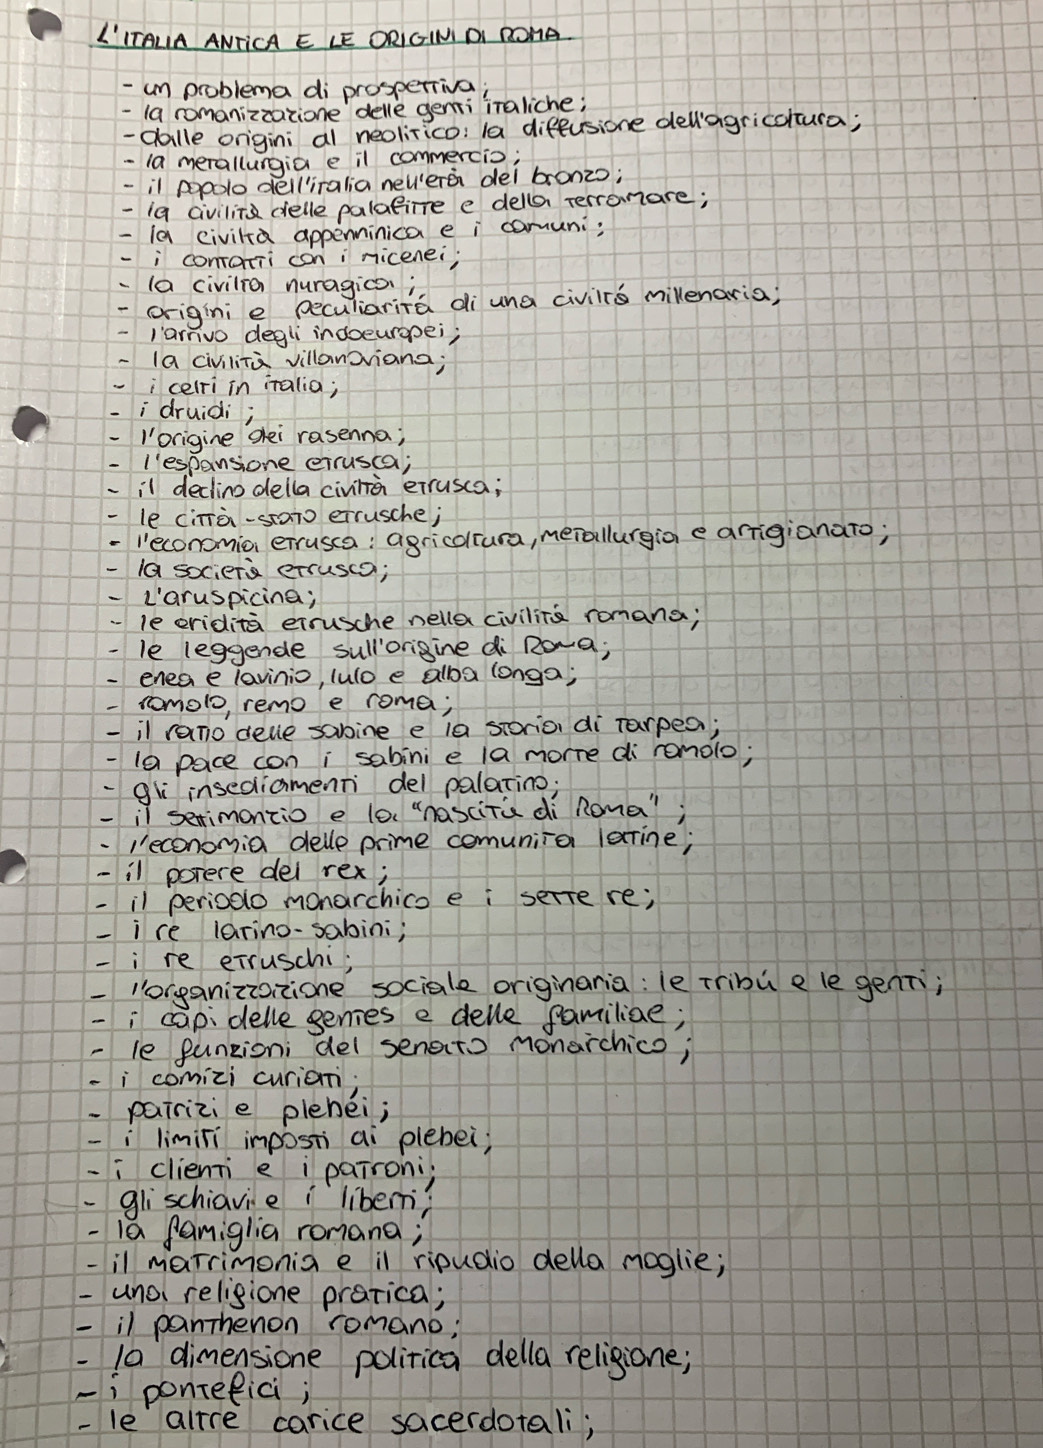 L'ITALIA ANTICA E LE ORIGINI DI ROMA
- un problema di prospettiva;
- la romanizzazione delle genti italiche;
- dalle origini al neolitico: la diffusione dell'agricoltura;
- la metallurgia e il commercio;
- il popolo dell'italia nell'età del bronzo;
- la civilità delle palafitte e della terramare;
- la civiltà appenninica e i comuni;
- i contatti con i micenei;
- la civiltà nuragica;
- origini e peculiarità di una civiltà millenaria;
- l'arrivo degli indoeuropei;
- la civilità villanoviana;
- i celti in italia;
- i druidi;
- l'origine dei rasenna;
- l'espansione etrusca;
- il declino della civiltà etrusca;
- le città-stato etrusche;
- l'economia etrusca: agricoltura, metallurgia e artigianato;
- la società etrusca;
- L'aruspicina;
- le eridità etrusche nella civilità romana;
- le leggende sull'origine di Roma;
- enea e lavinio, lulo e alba longa;
- romolo, remo e roma;
- il ratto delle sabine e la storia di tarpea;
- la pace con i sabini e la morte di romolo;
- gli insediamenti del palatino;
- il settimontio e la "nascita di Roma";
- l'economia delle prime comunità latine;
- il potere del rex;
- il periodo monarchico e i sette re;
- i re latino-sabini;
- i re etruschi;
- l'organizzazione sociale originaria: le tribú e le genti;
- i capi delle gentes e delle familiae;
- le funzioni del senato monarchico;
- i comizi curiati;
- patrizi e plebei;
- i limiti imposti ai plebei;
- i clienti e i patroni;
- gli schiavi e i liberti;
- la famiglia romana;
- il matrimonia e il ripudio della moglie;
- una religione pratica;
- il panthenon romano;
- la dimensione politica della religione;
- i pontefici;
- le altre carice sacerdotali;